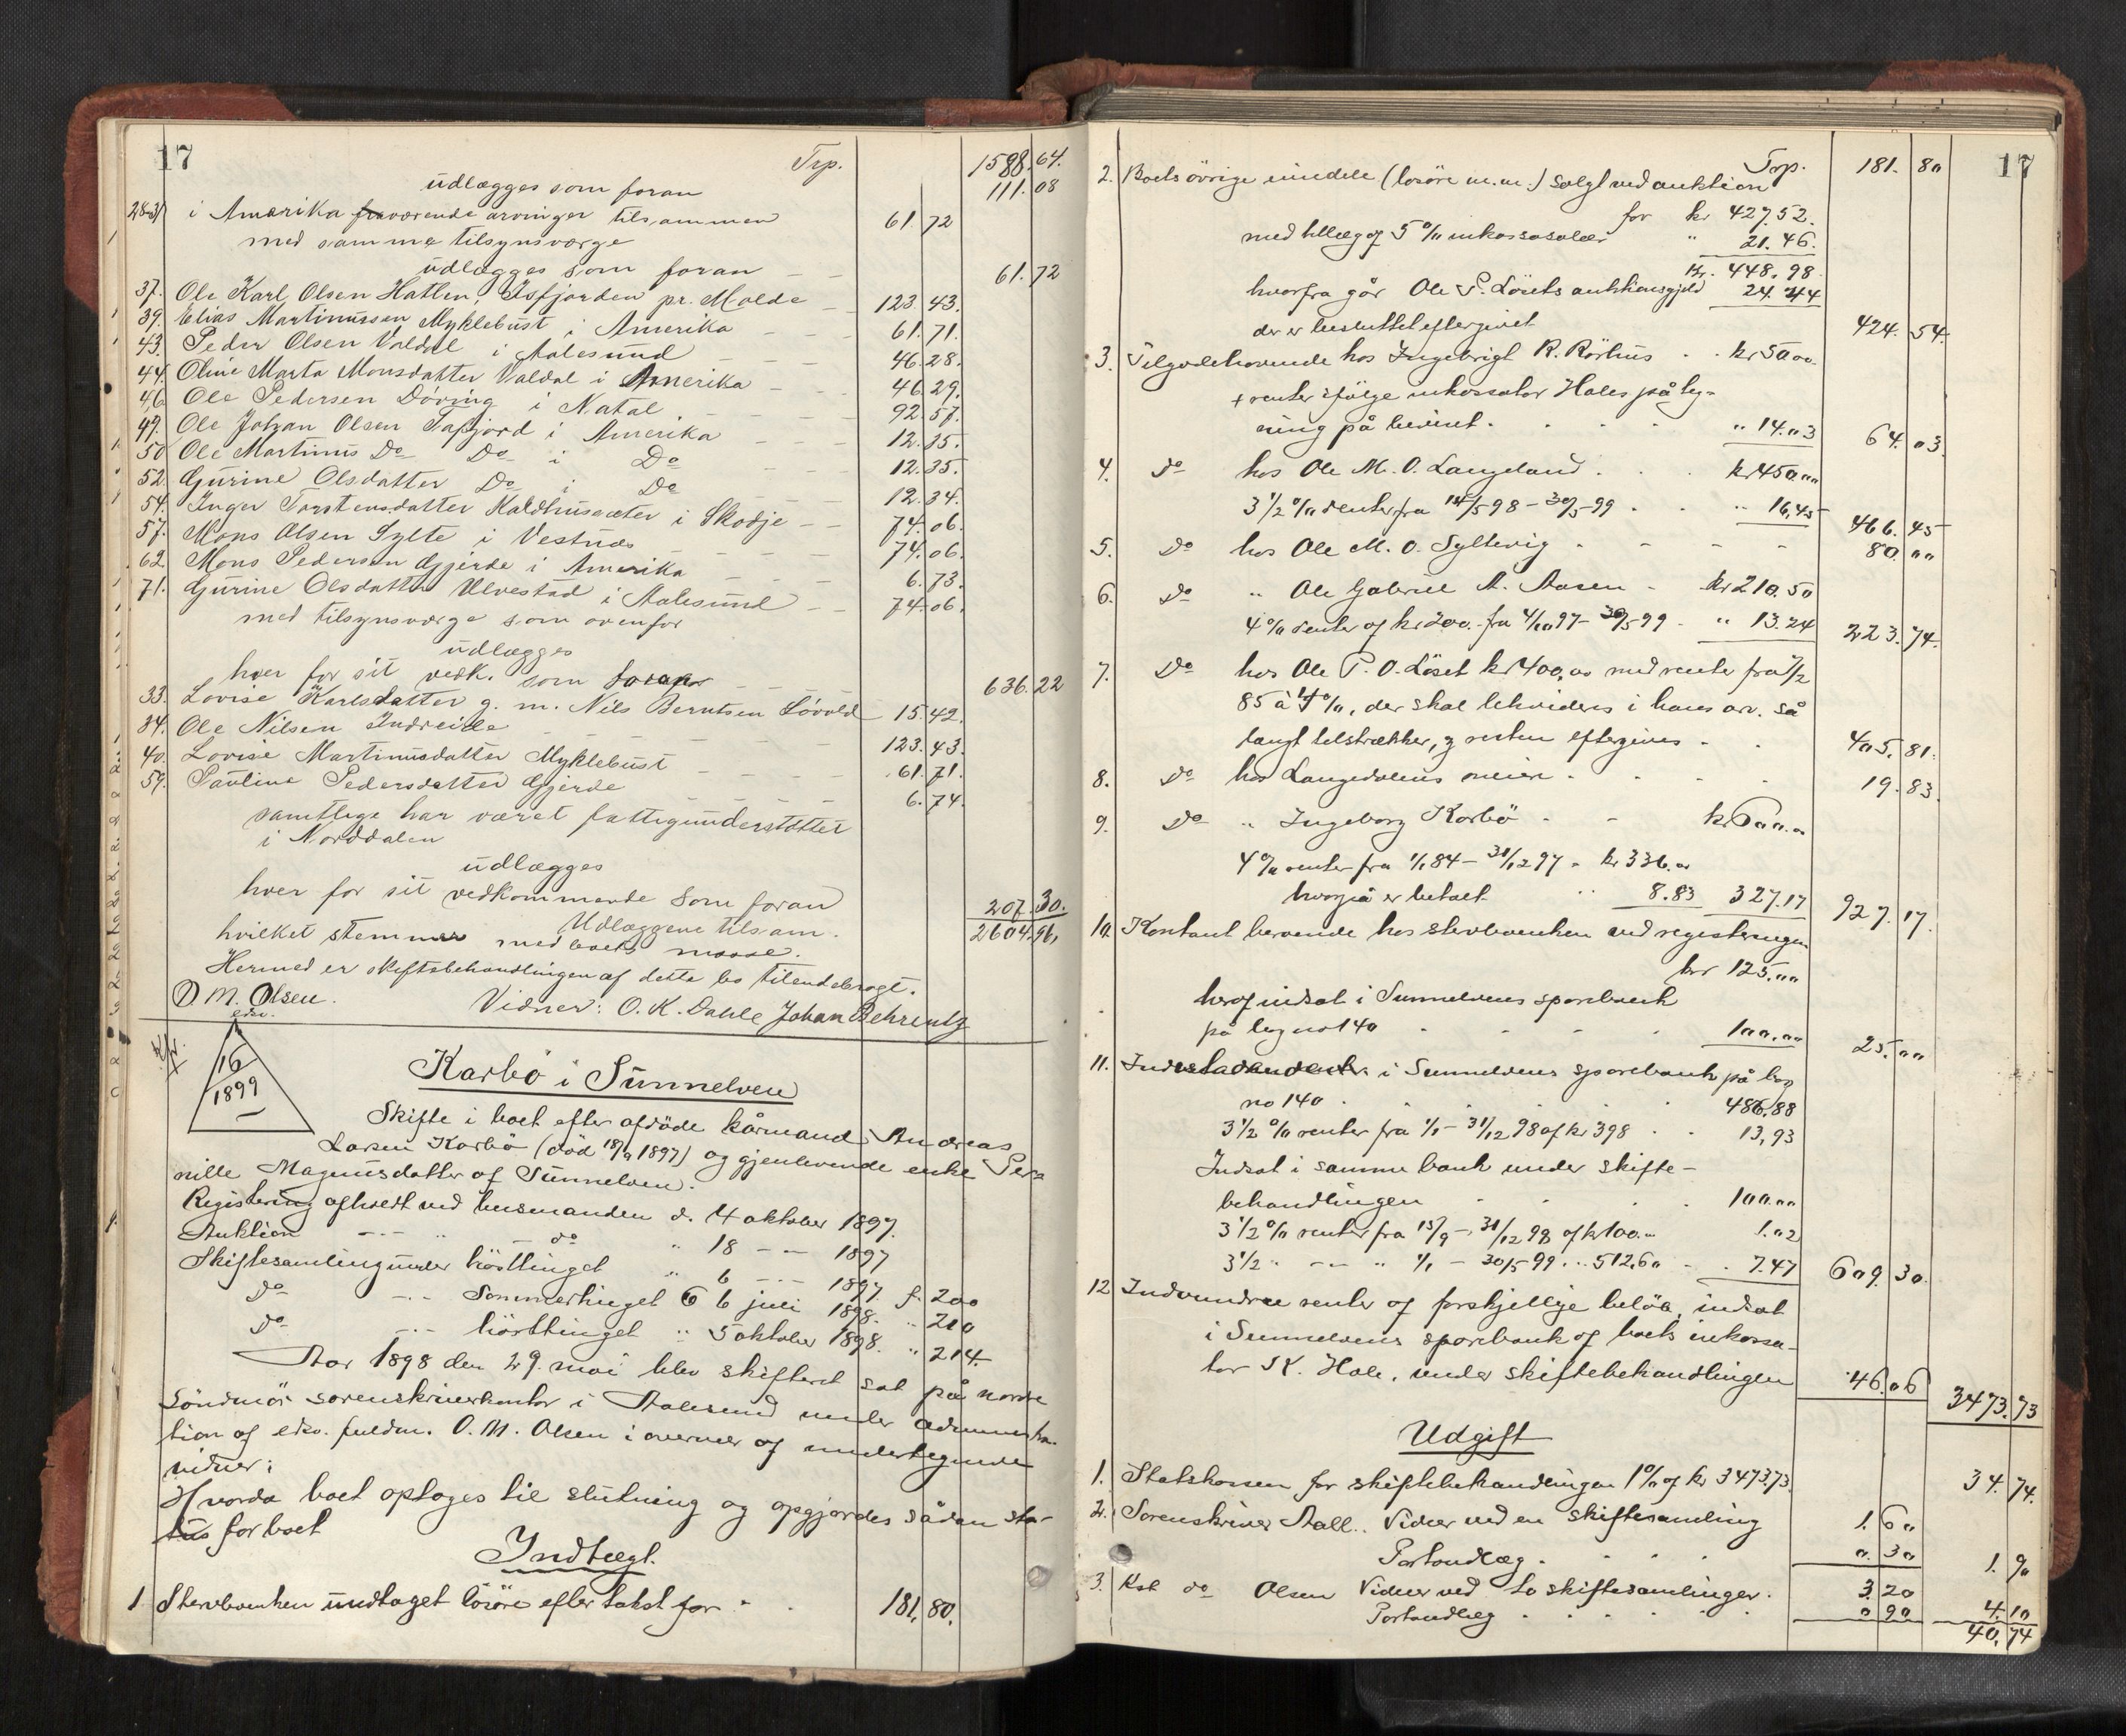 17
Trp. 1598. 64.
udlægges som foran 111. 08
28-31 i Amerika fraværende arvinger tilsammen 61. 72
med samme tilsynsværge
udlægges som foran 61. 72
37. Ole Karl Olsen Hatlen, Isfjorden pr. Molde 123. 43.
39. Elias Martinussen Myklebust i Amerika 61. 71.
43. Peder Olsen Valdal i Aalesund 46. 28.
44. Oline Marta Monsdatter Valdal i Amerika 46. 29.
46. Ole Pedersen Döving i Natal 92. 57.
49. Ole Johan Olsen Tafjord i Amerika 12. 35.
50 Ole Martinus Do Do i Do 12. 35.
52. Gurine Olsdatter Do i Do 12. 34.
54. Inger Torstensdatter Kaldhusæter i Skodje 74. 06.
57. Mons Olsen Sylte i Vestnæs 74. 06.
62. Mons Pedersen Gjerde i Amerika 6. 73.
71. Gurine Olsdatter Ulvestad i Aalesund 74. 06.
med tilsynsværge som ovenfor
udlægges
hver for sit vedk. som foran 636. 22
33. Lovise Karlsdatter g. m. Nils Berntsen Lövold 15. 42.
34. Ole Nilsen Indreide 123. 43.
40. Lovise Martinusdatter Myklebust 61. 71.
59. Pauline Pedersdatter Gjerde 6. 74.
samtlige har været fattigunderstöttet
i Norddalen
udlægges
hver for sit vedkommende som foran 207. 30.
Udlæggene tilsam. 2604. 96.
hvilket stemmer med boets masse.
Hermed er skiftebehandlingen af dette bo tilendebragt.
O M. Olsen. Vidner: O. K. Dahle Johan Behrentz
edsv.
16
1899
Karbö i Sunnelven
Skifte i boet efter afdöde kårmand Andreas
Larsen Korbö (död 18/9 1897) og gjenlevende enke Per-
nille Magnusdatter af Sunnelven.
Registering afholdt ved lensmanden d. 4 oktober 1897.
Auktion - - " - do " 18 - - 1897
Skiftesamling under hösttinget " 6 - - 1897 f. 200
do - - Sommertinget 6 juli 1898. " 210
do - - hösttinget " 5 oktober 1898. " 214.
Aar 1898 den 29. mai blev skifteret sat på nordre
Söndmör sorenskriverkontor i Aalesund under administra-
tion af edsv. fuldm. O. M. Olsen i overvær af undertegnede
vidner:
Hvorda boet optoges til slutning og opgjordes sådan sta-
tus for boet
Indtægt.
1. Stervboenken undtaget lösöre efter takst for 181. 80.
17
Trp. 181. 80
2. Boets övrige eiendele (lösöre m.m.) solgt ved auktion
for kr 427.52.
med tillæg af 5 % inkassosalær " 21. 46.
Kr. 448. 98.
hvorfra går Ole P. Lösets auktionsgjeld 24. 44
der er besluttet eftergivet 424. 54.
3. Tilgodehavende hos Ingebrigt R. Rörhus kr 50.00.
+ renter ifölge inkassator Hales påteg-
ning på beviset. " 14.03 64. 03.
4. Do hos Ole M. O. Langeland. kr 450.00
3 1/2 % renter fra 14/5 98 - 30/5 99 " 16,45 466. 45
5. Do hos Ole M. O. Syltevig 80. 00
6. Do " Ole Gabriel A. Aasen kr 210. 50
4 % renter af kr 200. fra 4/10 97 - 30/5 99 " 13.24 223. 74.
7. Do hos Ole P. O. Löset kr 400,00 med rente fra 1/2
85 à 4 %, der skal likvideres i hans arv. så
langt tilstrækker, og resten eftergives 405. 81.
8. Do hos Langedalens meieri 19. 83.
9. Do " Ingeborg Korbö kr 600.00
4 % renter fra 1/1 84 - 31/12 97 kr 336.00
hvorpå er betalt " 8.83 327.17 927. 17.
10. Kontant beroende hos stervboenken ved registeringen
kr 125.00
heraf indsat i Sunnelvens sparebank
på bog no 140 100.00 25. 00
11. Indestaaende i Sunnelvens sparebank på bog
no 140 486.88
3 1/2 % renter fra 1/1 - 31/12 98 af kr 398 13,93
Indsat i samme bank under skifte-
behandlingen 100.00
3 1/2 % renter fra 15/9 - 31/12 98 af kr 100.00 1.02
3 1/2 " - - " 1/1 - 30/5 99 " 512,60 7.47 609. 30.
12 Indvundne renter af forskjellige belöb, indsat
i Sunnelvens sparebank af boets inkassa-
tor K. Hole, under skiftebehandlingen 46. 06 3473. 73
Udgift
1. Statskassen for skiftebehandlingen 1 % af kr 3473.73. 34. 74.
2. Sorenskriver Aall. Vidner ved en skiftesamling 1. 60
Portoudlæg. 0. 30 1. 90
3. Kst do Olsen Vidner ved to skiftesamlinger. 3. 20
Portoudlæg 0 90 4. 10
40. 74